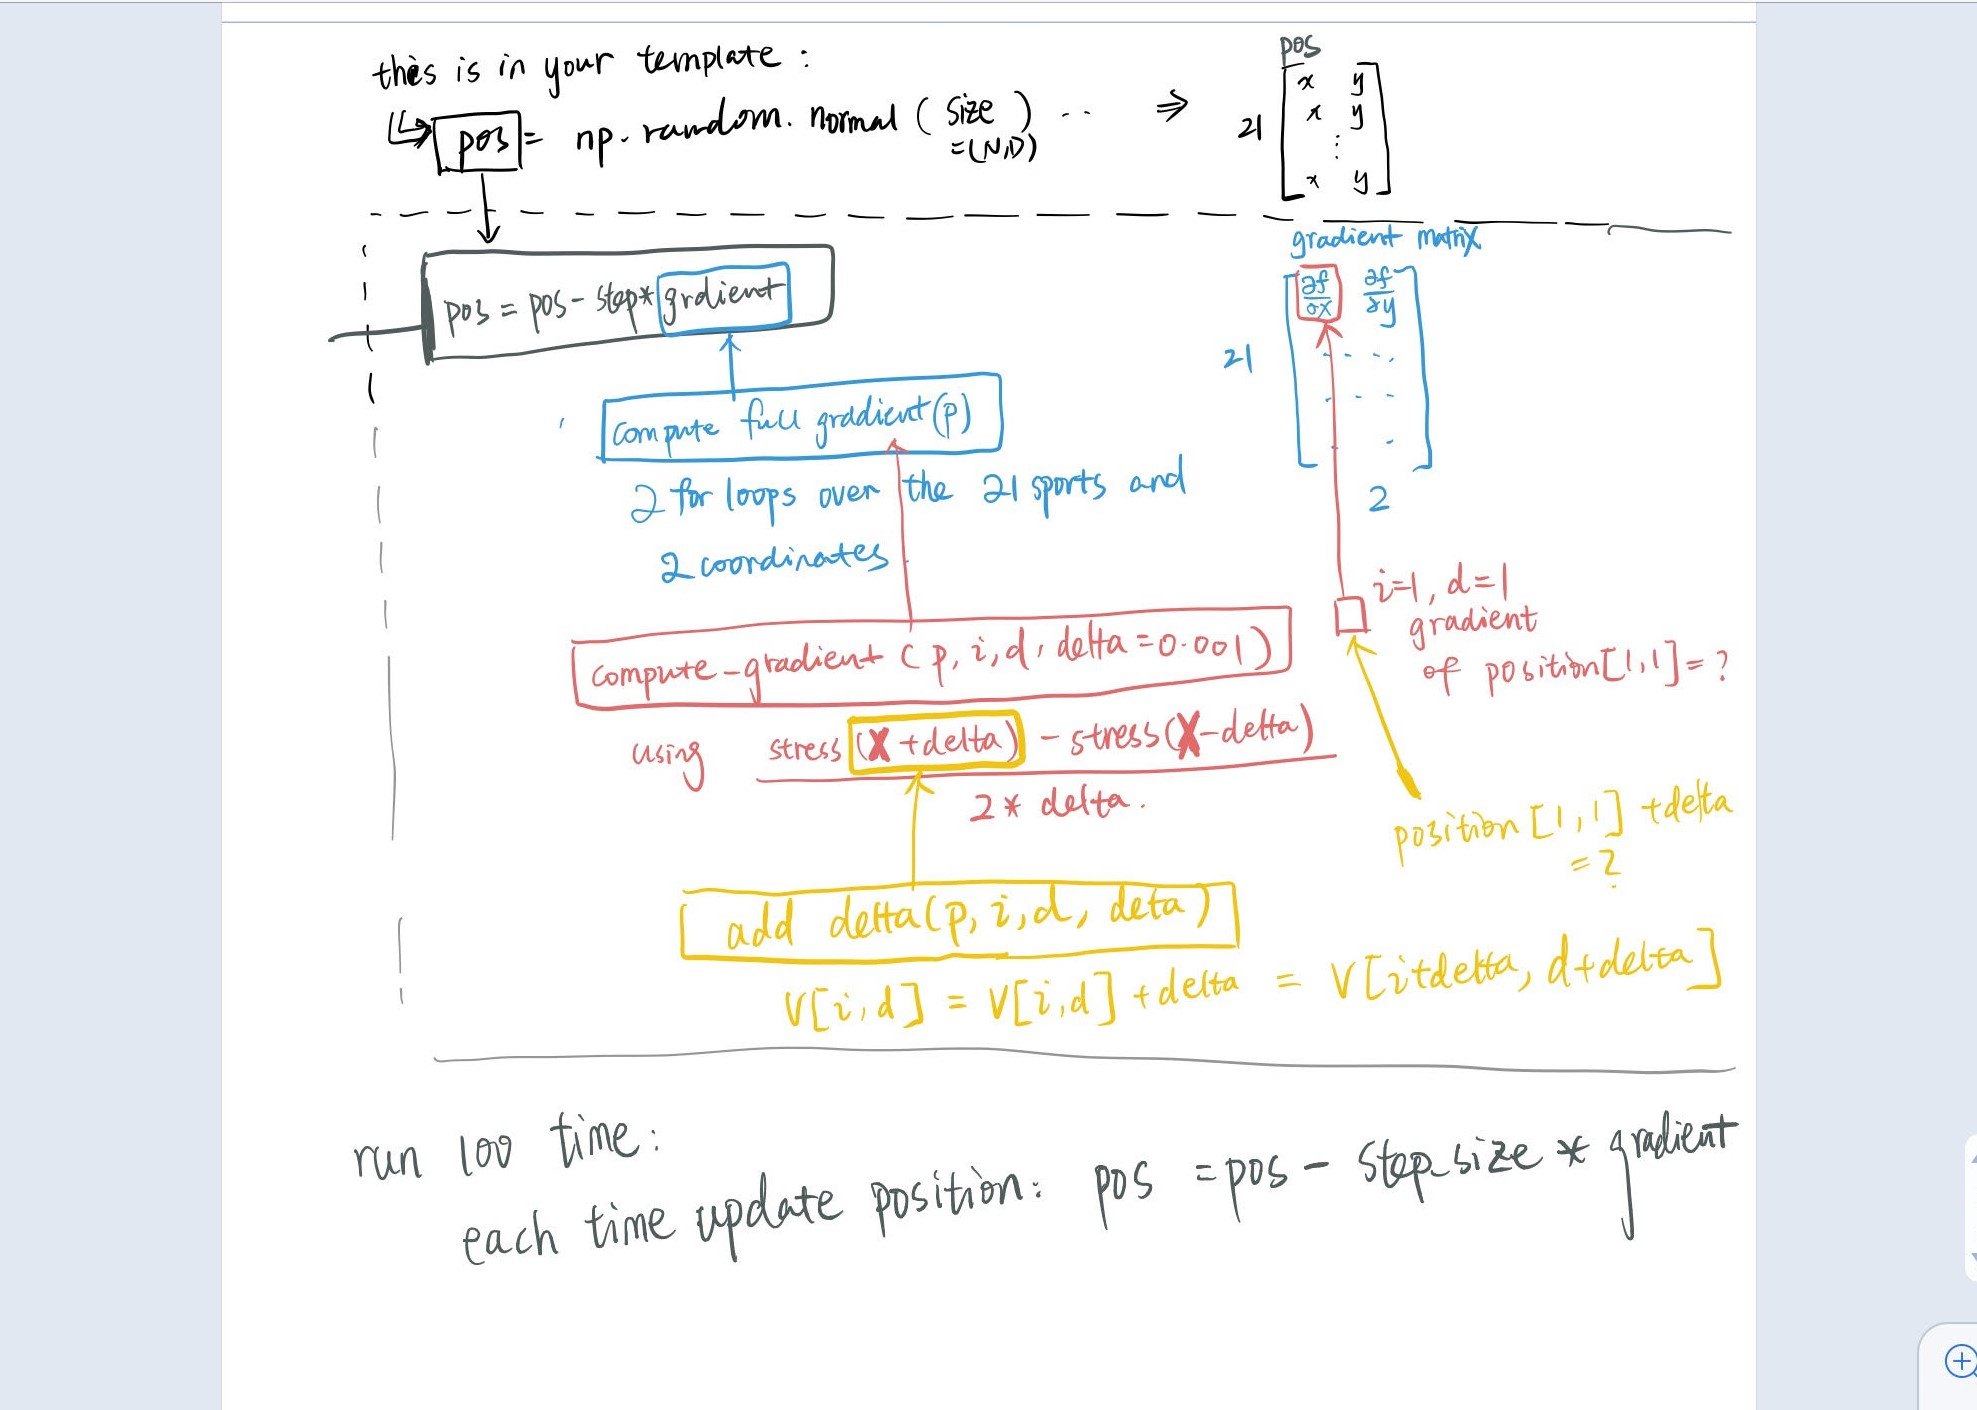 this is in your template :
pos = np.random.normal ( size =(N,D) ) .. ⇒
pos
21
x y
x y
⋮
x y
gradient matrix
∂f/∂x ∂f/∂y
21
2
pos = pos - step * grdient
compute full gradient(p)
2 for loops over the 21 sports and
2 coordinates
i=1, d=1
gradient
of position[1,1] = ?
compute-gradient ( p, i, d, delta = 0.001 )
using stress (X + delta) - stress(X - delta)
2 * delta.
position [1,1] + delta
= ?
add delta(p, i, d, deta)
V[i, d] = V[i, d] + delta = V[i+delta, d+delta]
run 100 time:
each time update position: pos = pos - step_size * gradient